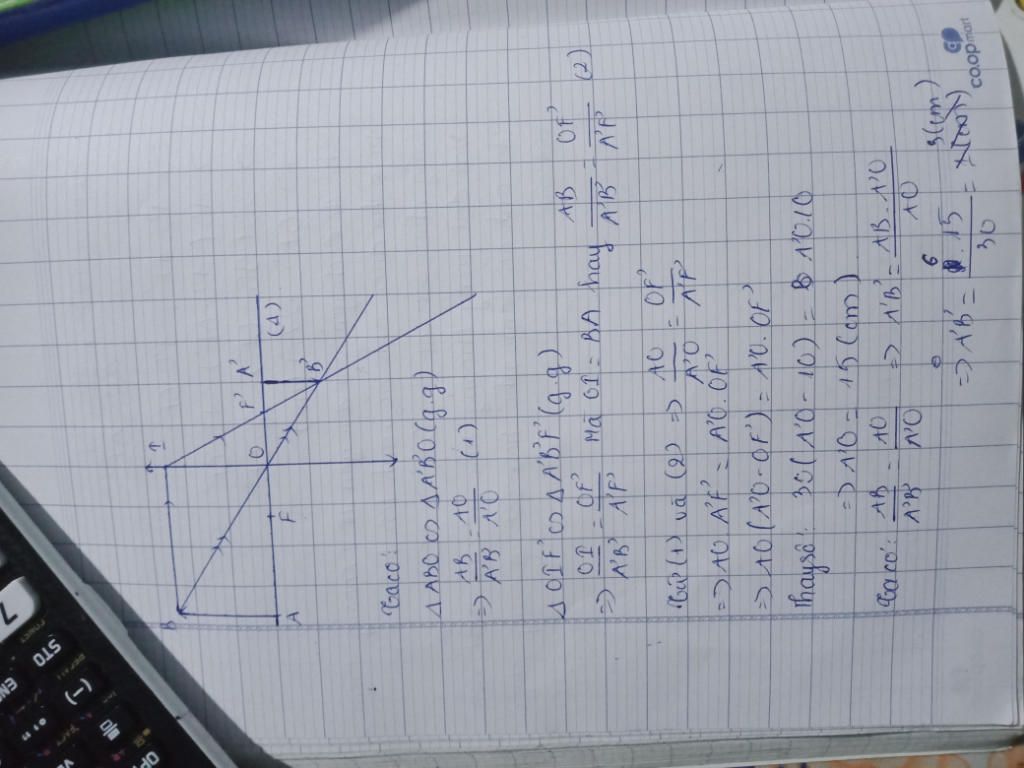 B
I
A
F
O
F'
A'
B'
(Δ)
Ta có:
Δ ABO ∽ Δ A'B'O (g.g)
=> AB/A'B' = AO/A'O (1)
Δ OIF' ∽ Δ A'B'F' (g.g)
=> OI/A'B' = OF'/A'F' Mà OI = BA hay AB/A'B' = OF'/A'F' (2)
Từ (1) và (2) => AO/A'O = OF'/A'F'
=> AO A'F' = A'O.OF'
=> AO (A'O - OF') = A'O.OF'
Thay số: 30 (A'O - 10) = A'O.10
=> A'O = 15 (cm)
Ta có: AB/A'B' = AO/A'O => A'B' = AB.A'O/AO
=> A'B' = 6.15/30 = 3 (cm)
co.opmart
7
STO
ENG
(-)